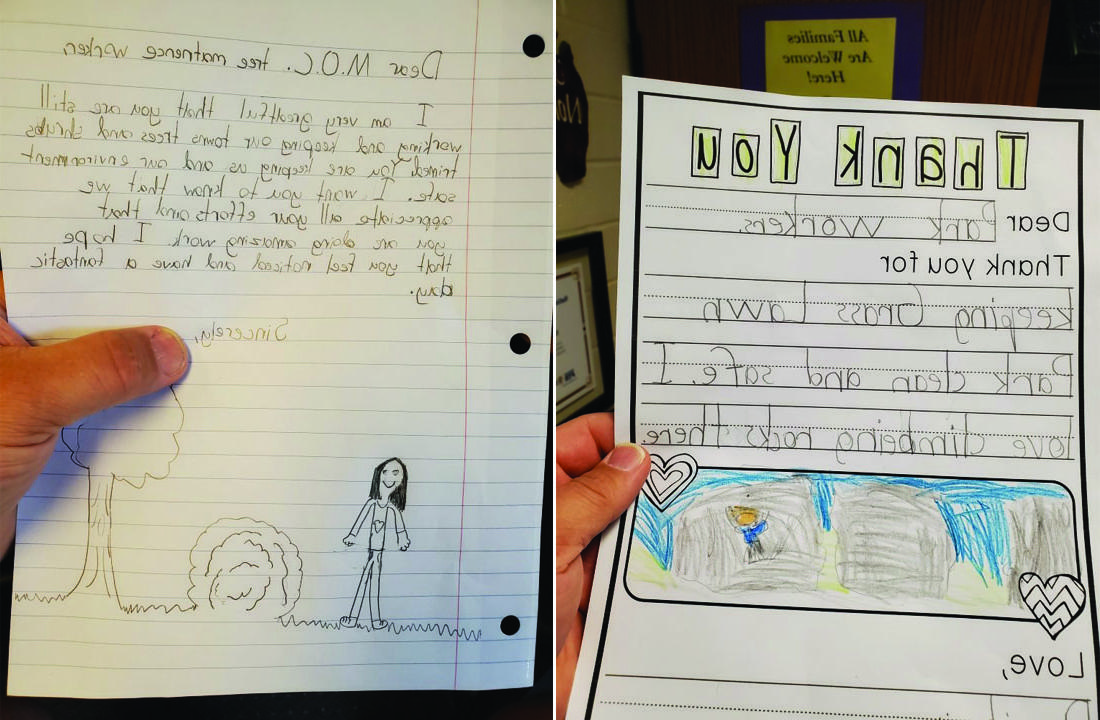 Dear M.O.C. tree matnence worker,
I am very greatful that you are still
working and keeping our towns trees and shrubs
trimed. You are keeping us and our environment
safe. I want you to know that we
appreciate all your efforts and that
you are doing amazing work. I hope
that you feel noticed and have a fantastic
day.
Sincerely,
All Families
Are Welcome
Here!
Thank You
Dear Park workers,
Thank you for
keeping Grass Lawn
Park clean and safe. I
love climbeing rocks there.
Love,